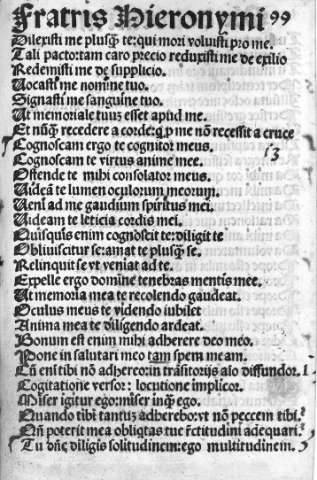 Fratris Hieronymi 99
Dilexisti me plusq̃ te: qui mori voluisti pro me.
Tali pacto: tam caro precio reduxisti me de exilio
Redemisti me de supplicio.
Uocasti me nomine tuo.
Signasti me sanguine tuo.
Ut memoriale tuũ esset apud me.
Et nũq̃ recedere a corde: q̃ p me nõ recessit a cruce
Cognoscam ergo te cognitor meus.
Cognoscam te virtus anime mee.
Ostende te mihi consolator meus.
Uideã te lumen oculorum meorum.
Ueni ad me gaudium spiritus mei.
Uideam te leticia cordis mei.
Quisquis enim cognoscit te: diligit te
Obliuiscitur se: amat te plusq̃ se.
Relinquit se vt veniat ad te.
Expelle ergo domine tenebras mentis mee.
Ut memoria mea te recolendo gaudeat.
Oculus meus te videndo iubilet
Anima mea te diligendo ardeat.
Bonum est enim mihi adherere deo meo.
Pone in salutari meo tam spem meam.
Cũ eni tibi nõ adhereo: in trãsitorijs alio diffundor.
Cogitatione versor: locutione implicor.
Miser igitur ego: miser inq̃ ego.
Quando tibi tantuz adherebo: vt nõ peccem tibi.
Nñ poterit mea obliq̃tas tue rectitudini adequari.
Tu dñe diligis solitudinem: ego multitudinem.